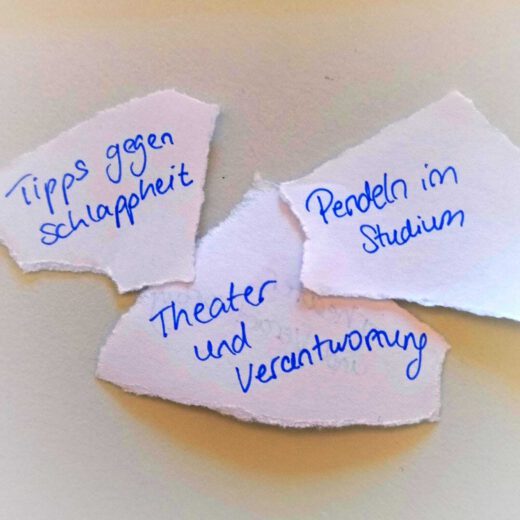 Tipps gegen
schlappheit
Pendeln im
Studium
Theater
und
Verantwortung